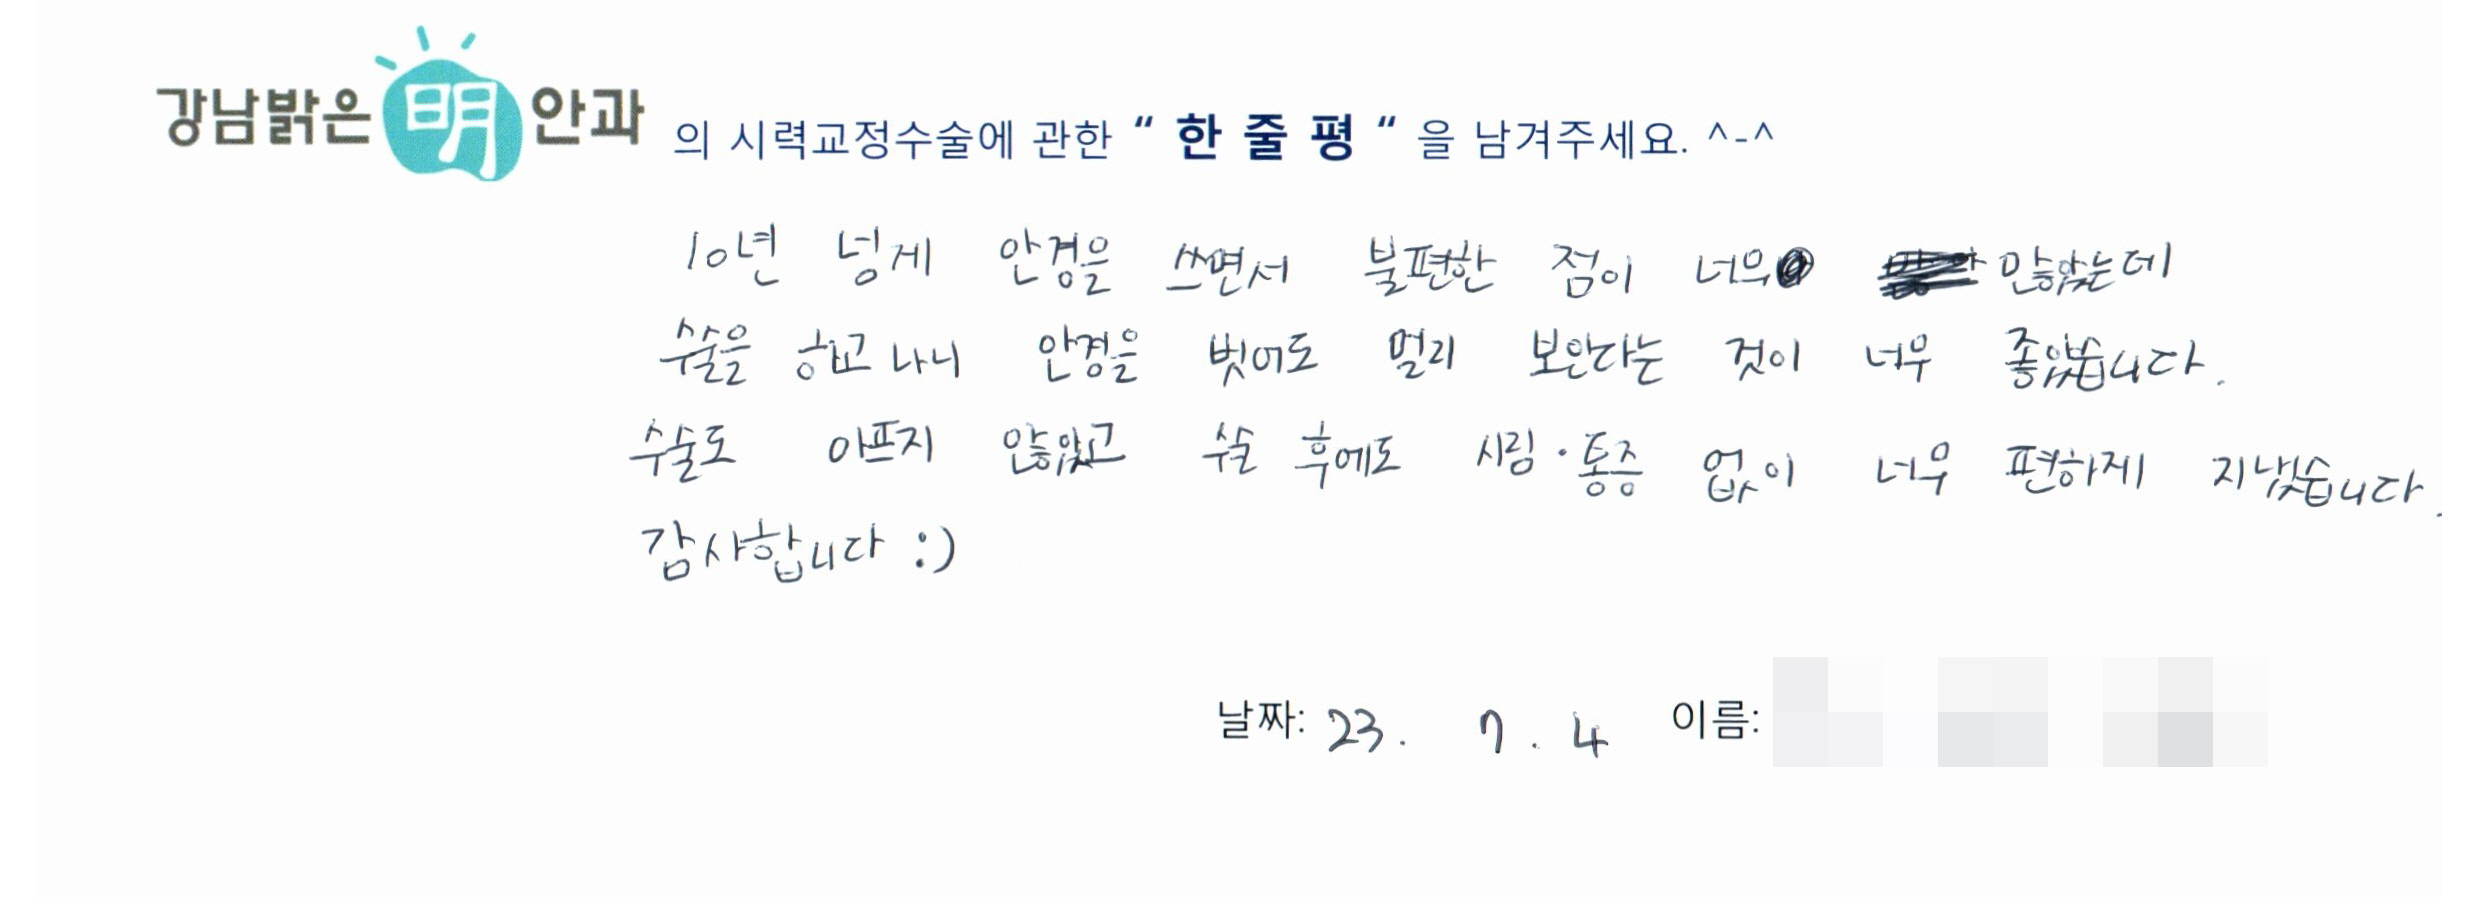 강남밝은 明 안과 의 시력교정수술에 관한 “ 한 줄 평 “ 을 남겨주세요. ^-^
10년 넝게 안경을 쓰면서 불편한 점이 너무 많았는데
수술을 하고 나니 안경을 벗어도 멀리 보인다는 것이 너무 좋았습니다.
수술도 아프지 않았고 수술 후에도 시림·통증 없이 너무 편하게 지냈습니다.
감사합니다 :)
날짜: 23. 7. 4 이름: